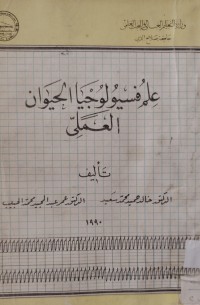 وزارة التعليم العالي والبحث العلمي
علم فسيولوجيا الحيوان
العملي
تأليف
الدكتور خالد حميد محمد سعيد الدكتور عمر عبد المجيد محمد الحبيب
١٩٩٠